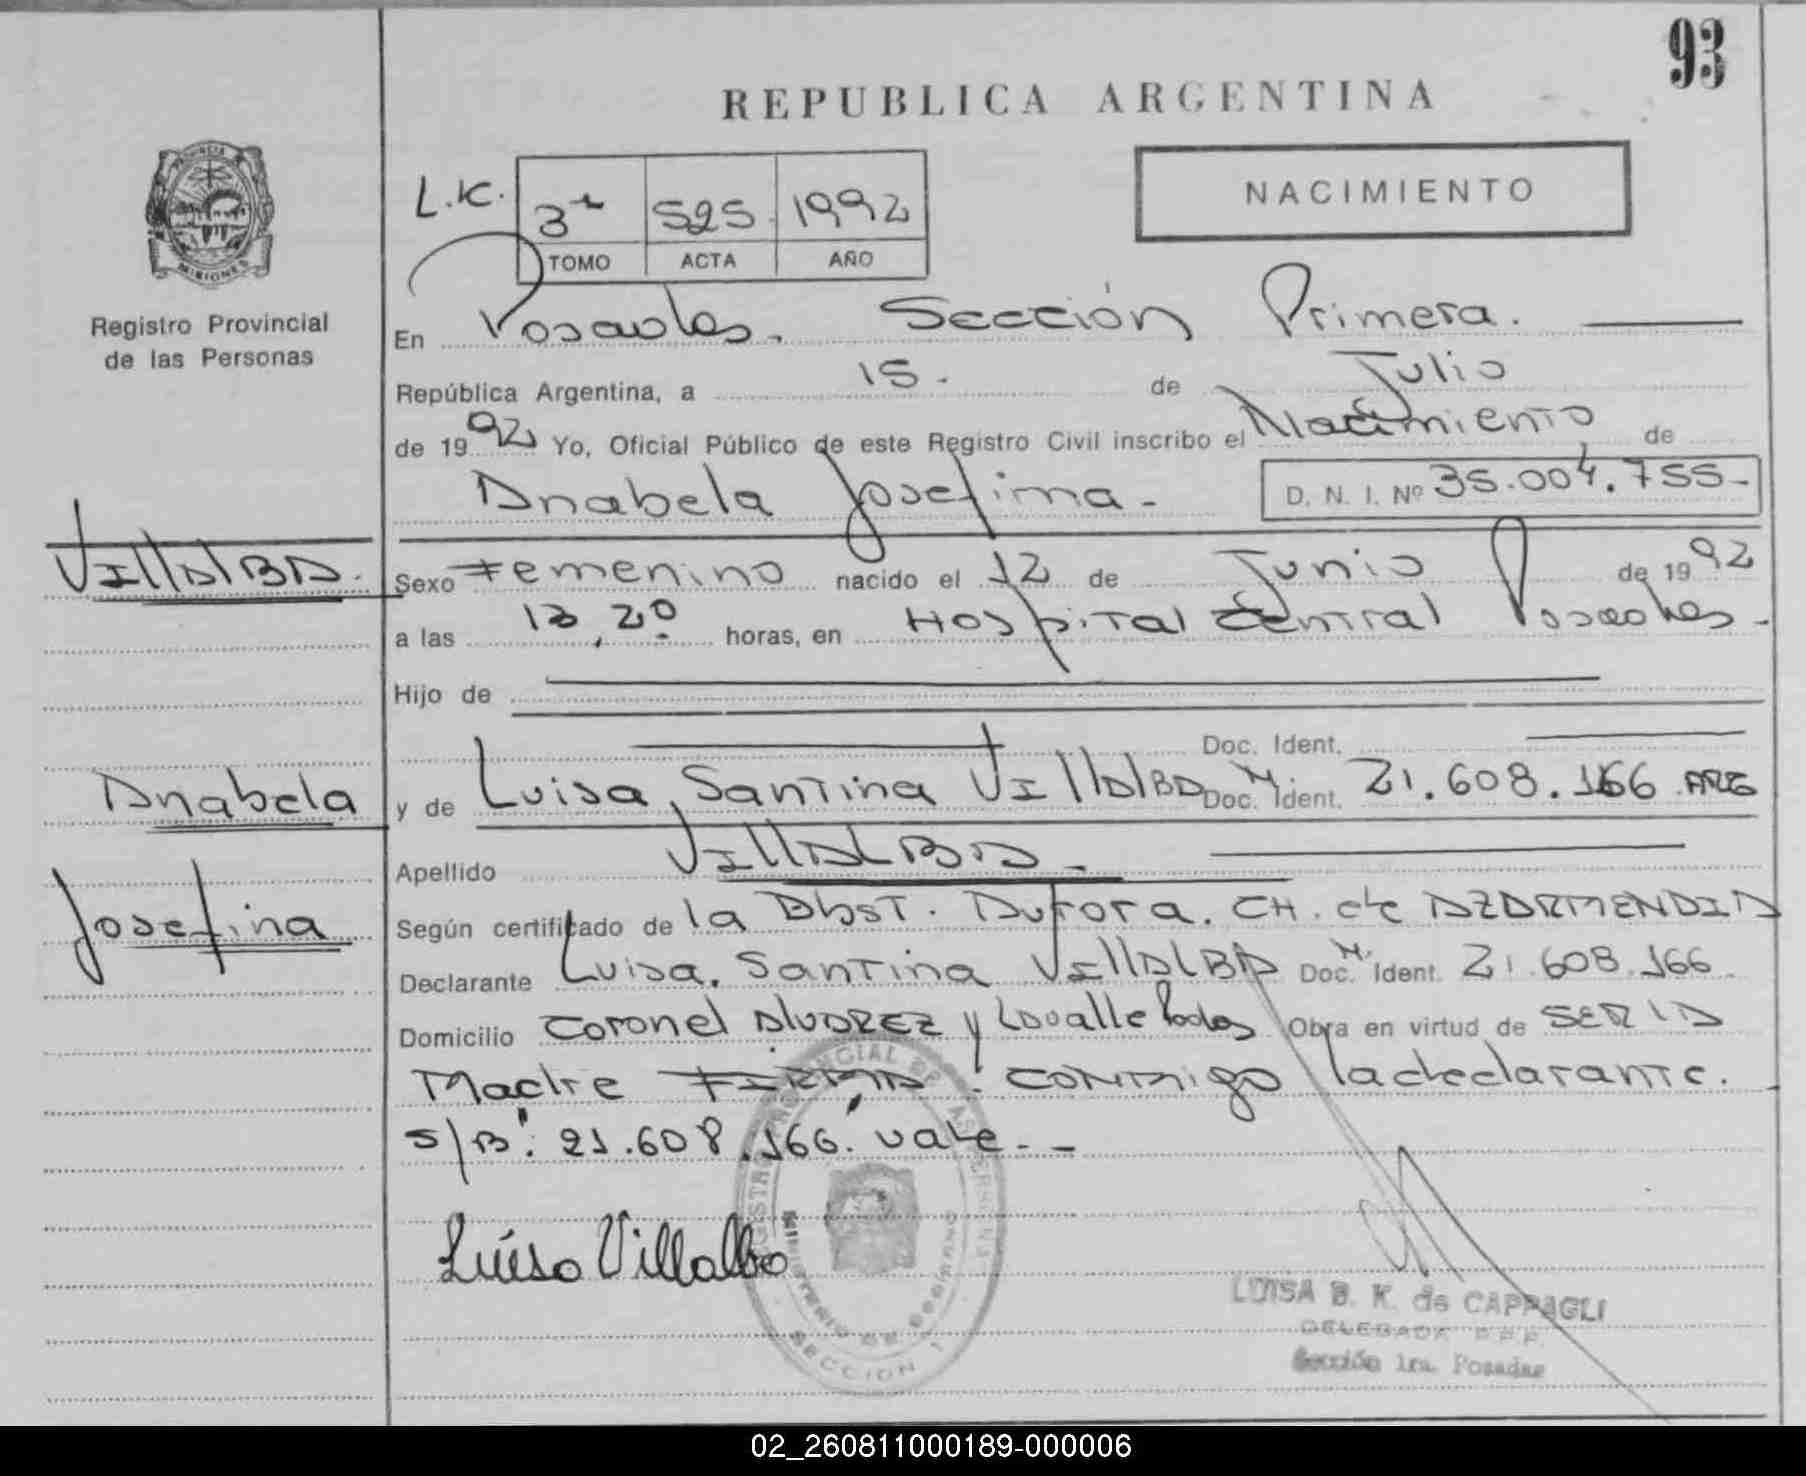 93
REPUBLICA ARGENTINA
PROVINCIA
MISIONES
Registro Provincial
de las Personas
L.K.
3º 525 1992
TOMO ACTA AÑO
NACIMIENTO
En Posadas. Sección Primera.
República Argentina, a 15. de Julio
de 1992 Yo, Oficial Público de este Registro Civil inscribo el Nacimiento de
Anabela Josefina - D. N. I. Nº 35.004.755-
VIllAlBA.
Sexo Femenino nacido el 12 de Junio de 1992
a las 13,20 horas, en Hospital Central Posadas -
Hijo de
Doc. Ident.
Anabela
y de Luisa, Santina VIllAlBA Doc. M. Ident. 21.608.166 ARG
Apellido VIllALBA -
Josefina
Según certificado de la Obst. Aurora. CH. de AZARMENDIA
Declarante Luisa. Santina VIllAlBA Doc. M. Ident. 21.608.166
Domicilio Coronel AlVAREZ y Lavalle Pdas Obra en virtud de SER lA
Madre FIRMA: conmigo la declarante.
S/B": 21.608.166" vale. -
Luisa Villalba
REGISTRO PROVINCIAL DE LAS PERSONAS
MINISTERIO DE GOBIERNO
SECCION 1
LUISA B. K. de CAPPAGLI
DELEGADA R.P.P.
Sección 1ra. Posadas
02_260811000189-000006